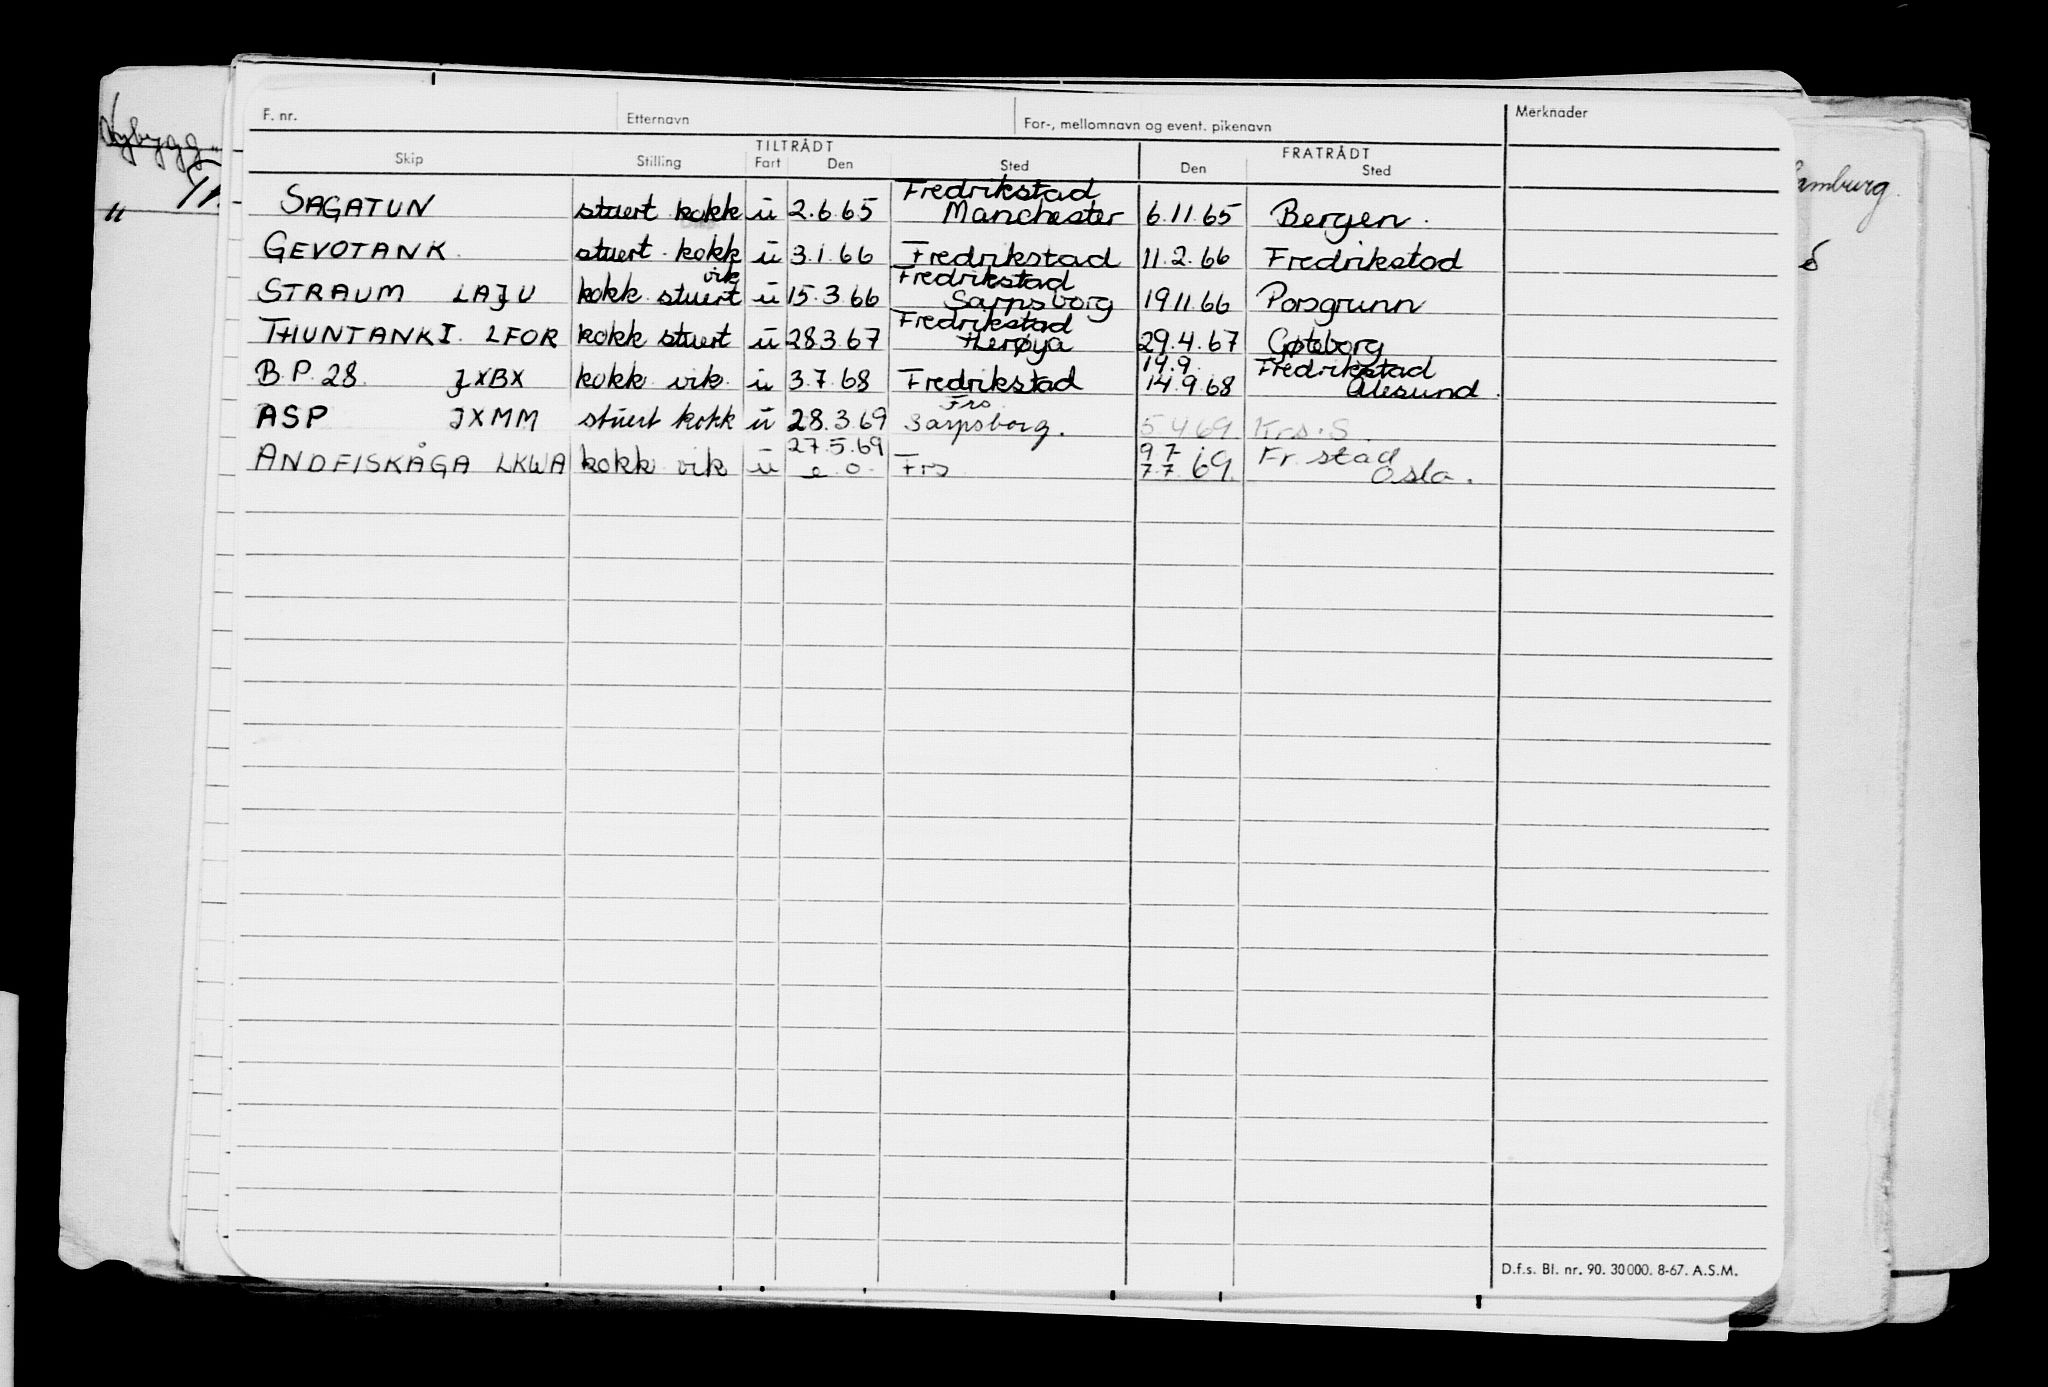 F. nr. Etternavn For-, mellomnavn og event. pikenavn Merknader
TILTRÅDT FRATRÅDT
Skip Stilling Fart Den Sted Den Sted
Fredrikstad
SAGATUN stuert kokk u 2.6.65 Manchester 6.11.65 Bergen.
GEVOTANK. stuert kokk u 3.1.66 Fredrikstad 11.2.66 Fredrikstad
vik Fredrikstad
STRAUM LAJU kokk stuert u 15.3.66 Sarpsborg 19.11.66 Porsgrunn
Fredrikstad
THUNTANK I. LFOR kokk stuert u 28.3.67 Herøya 29.4.67 Gøteborg
14.9. Fredrikstad
B.P. 28. JXBX kokk vik. u 3.7.68 Fredrikstad 14.9.68 Ålesund.
Frs
ASP JXMM stuert kokk u 28.3.69 Sarpsborg. 5.4.69 Krs.S.
27.5.69 9 7 Fr.stad
ANDFISKÅGA LKWA kokk vik u e.o. Frs 7.7.69. Oslo.
D.f.s. Bl. nr. 90. 30 000. 8-67. A.S.M.
Nybygg
"
Hamburg.